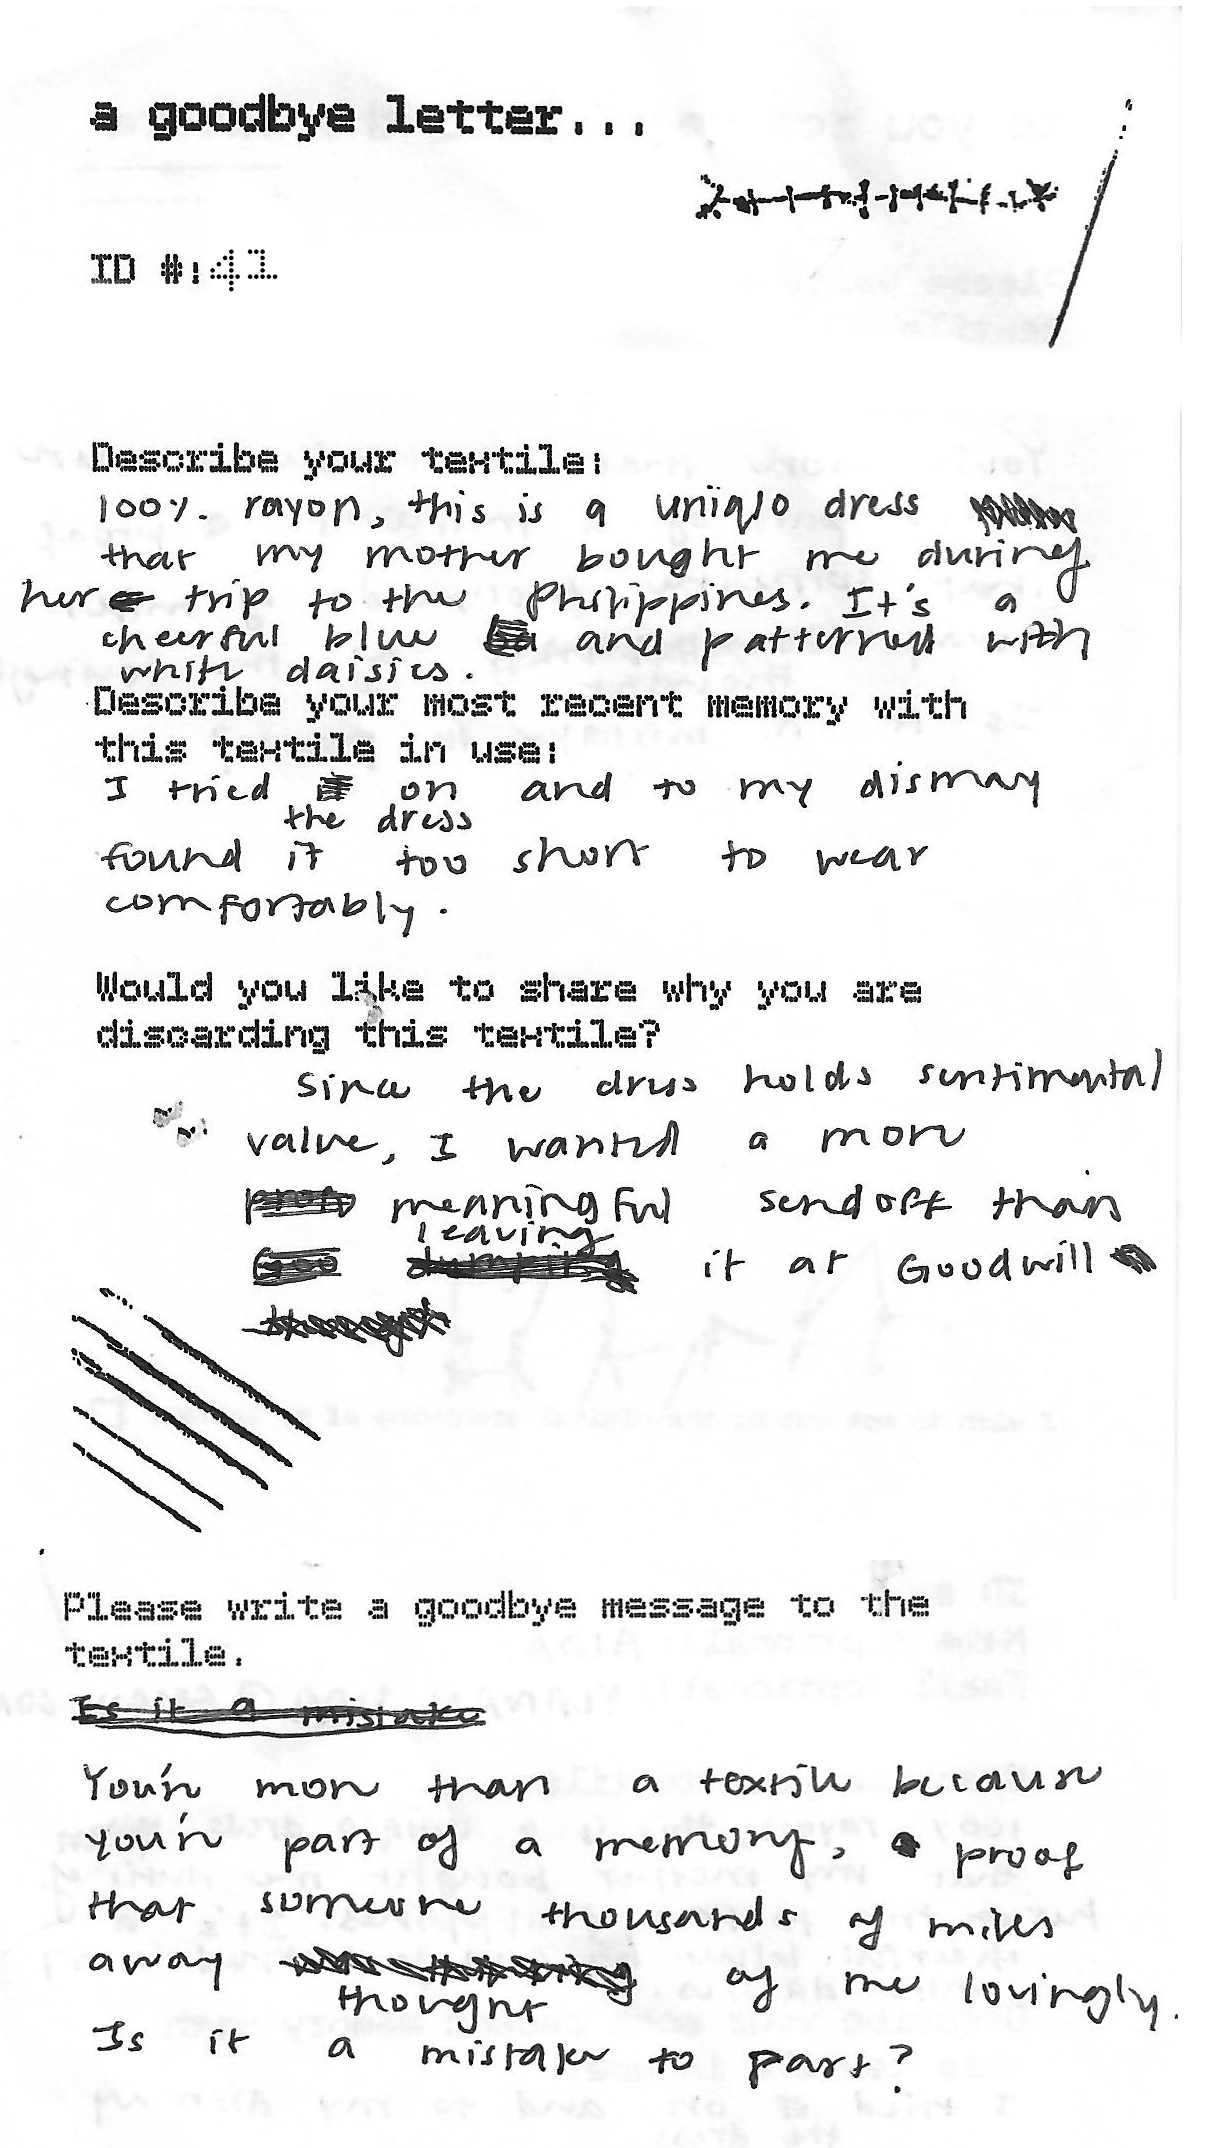 a goodbye letter...
ID #:41
Describe your textile:
100%. rayon, this is a uniqlo dress
that my mother bought me during
her trip to the Philippines. It's a
cheerful blue and patterned with
white daisies.
Describe your most recent memory with
this textile in use:
I tried on and to my dismay
the dress
found it too short to wear
comfortably.
Would you like to share why you are
discarding this textile?
Since the dress holds sentimental
value, I wanted a more
meaningful sendoff than
leaving
it at Goodwill
Please write a goodbye message to the
textile.
Is it a mistake
You're more than a textile because
you're part of a memory, proof
that someone thousands of miles
away of me lovingly.
thought
Is it a mistake to part?